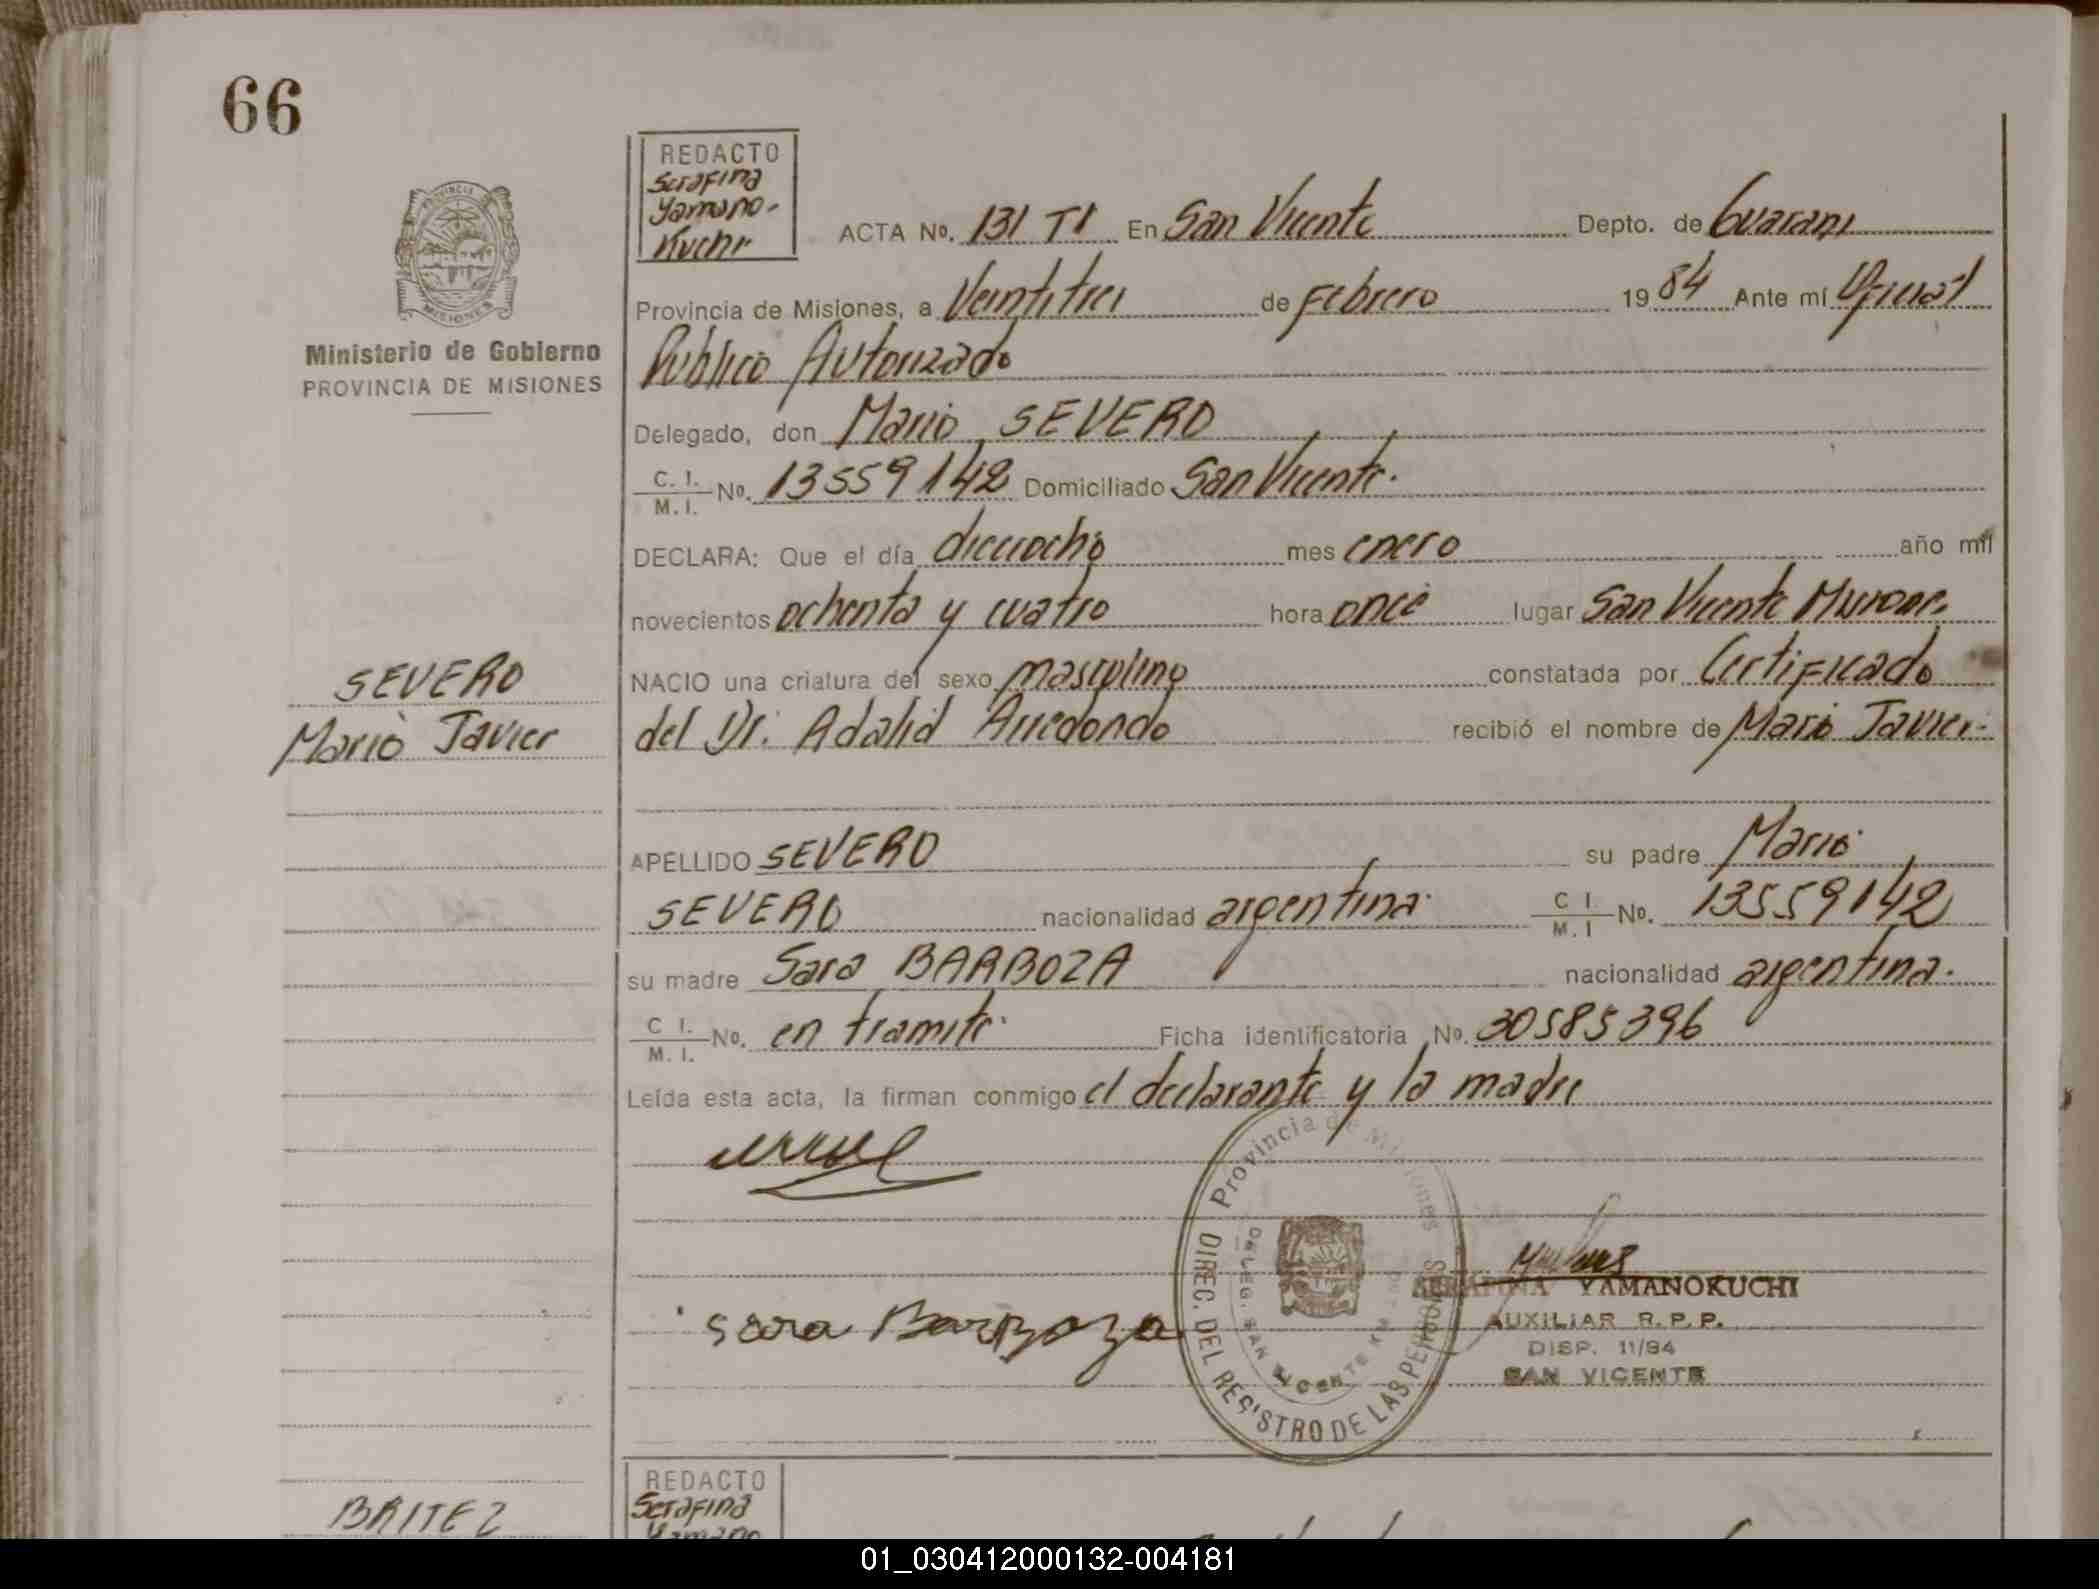 66
REDACTO
Serafina
Yamano-
Kuchi
ACTA No. 131 TI En San Vicente Depto. de Guarani
Provincia de Misiones, a Veintitres de Febrero 19 84 Ante mí Oficial
Ministerio de Gobierno
PROVINCIA DE MISIONES
Publico Autorizado
Delegado, don Mario SEVERO
C. I. / M. I. No. 13559142 Domiciliado San Vicente.
DECLARA: Que el día dieciocho mes enero año mil
novecientos ochenta y cuatro hora once lugar San Vicente Misiones
SEVERO
NACIO una criatura del sexo masculino constatada por Certificado
Mario Javier
del Dr. Adalid Arredondo recibió el nombre de Mario Javier.-
APELLIDO SEVERO su padre Mario
SEVERO nacionalidad argentina. C I / M. I No. 13559142
su madre Sara BARBOZA nacionalidad argentina.
C I. / M. I. No. en tramite. Ficha identificatoria No. 30585396
Leída esta acta, la firman conmigo el declarante y la madre
Provincia de Misiones
DIREC. DEL REGISTRO DE LAS PERSONAS
DELEG. SAN VICENTE
Sara Barboza
SERAFINA YAMANOKUCHI
AUXILIAR R. P. P.
DISP. 11/84
SAN VICENTE
REDACTO
Serafina
Yamano
BRITEZ
01_030412000132-004181